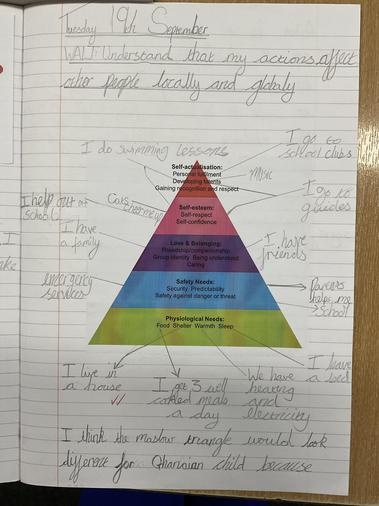 Tuesday 19th September
WALT: Understand that my actions affect
other people locally and globaly
I do swimming lessons
I go to
school clubs
Self-actualisation:
Personal fulfilment
Developing talents
Gaining recognition and respect
Music
I go to
guides
I help out at
school
Cats
Self-esteem:
Self-respect
Self-confidence
I have
a family
Love & Belonging:
Friendship/companionship
Group identity Being understood
Caring
I have
friends
emergency
services
Safety Needs:
Security Predictability
Safety against danger or threat
Parents
helps me
school
Physiological Needs:
Food Shelter Warmth Sleep
I live in
a house
I get 3 well
cooked meals
a day
We have
heating
and
electricity
I have
a bed
I think the maslow triangle would look
different for Ghanaian child because